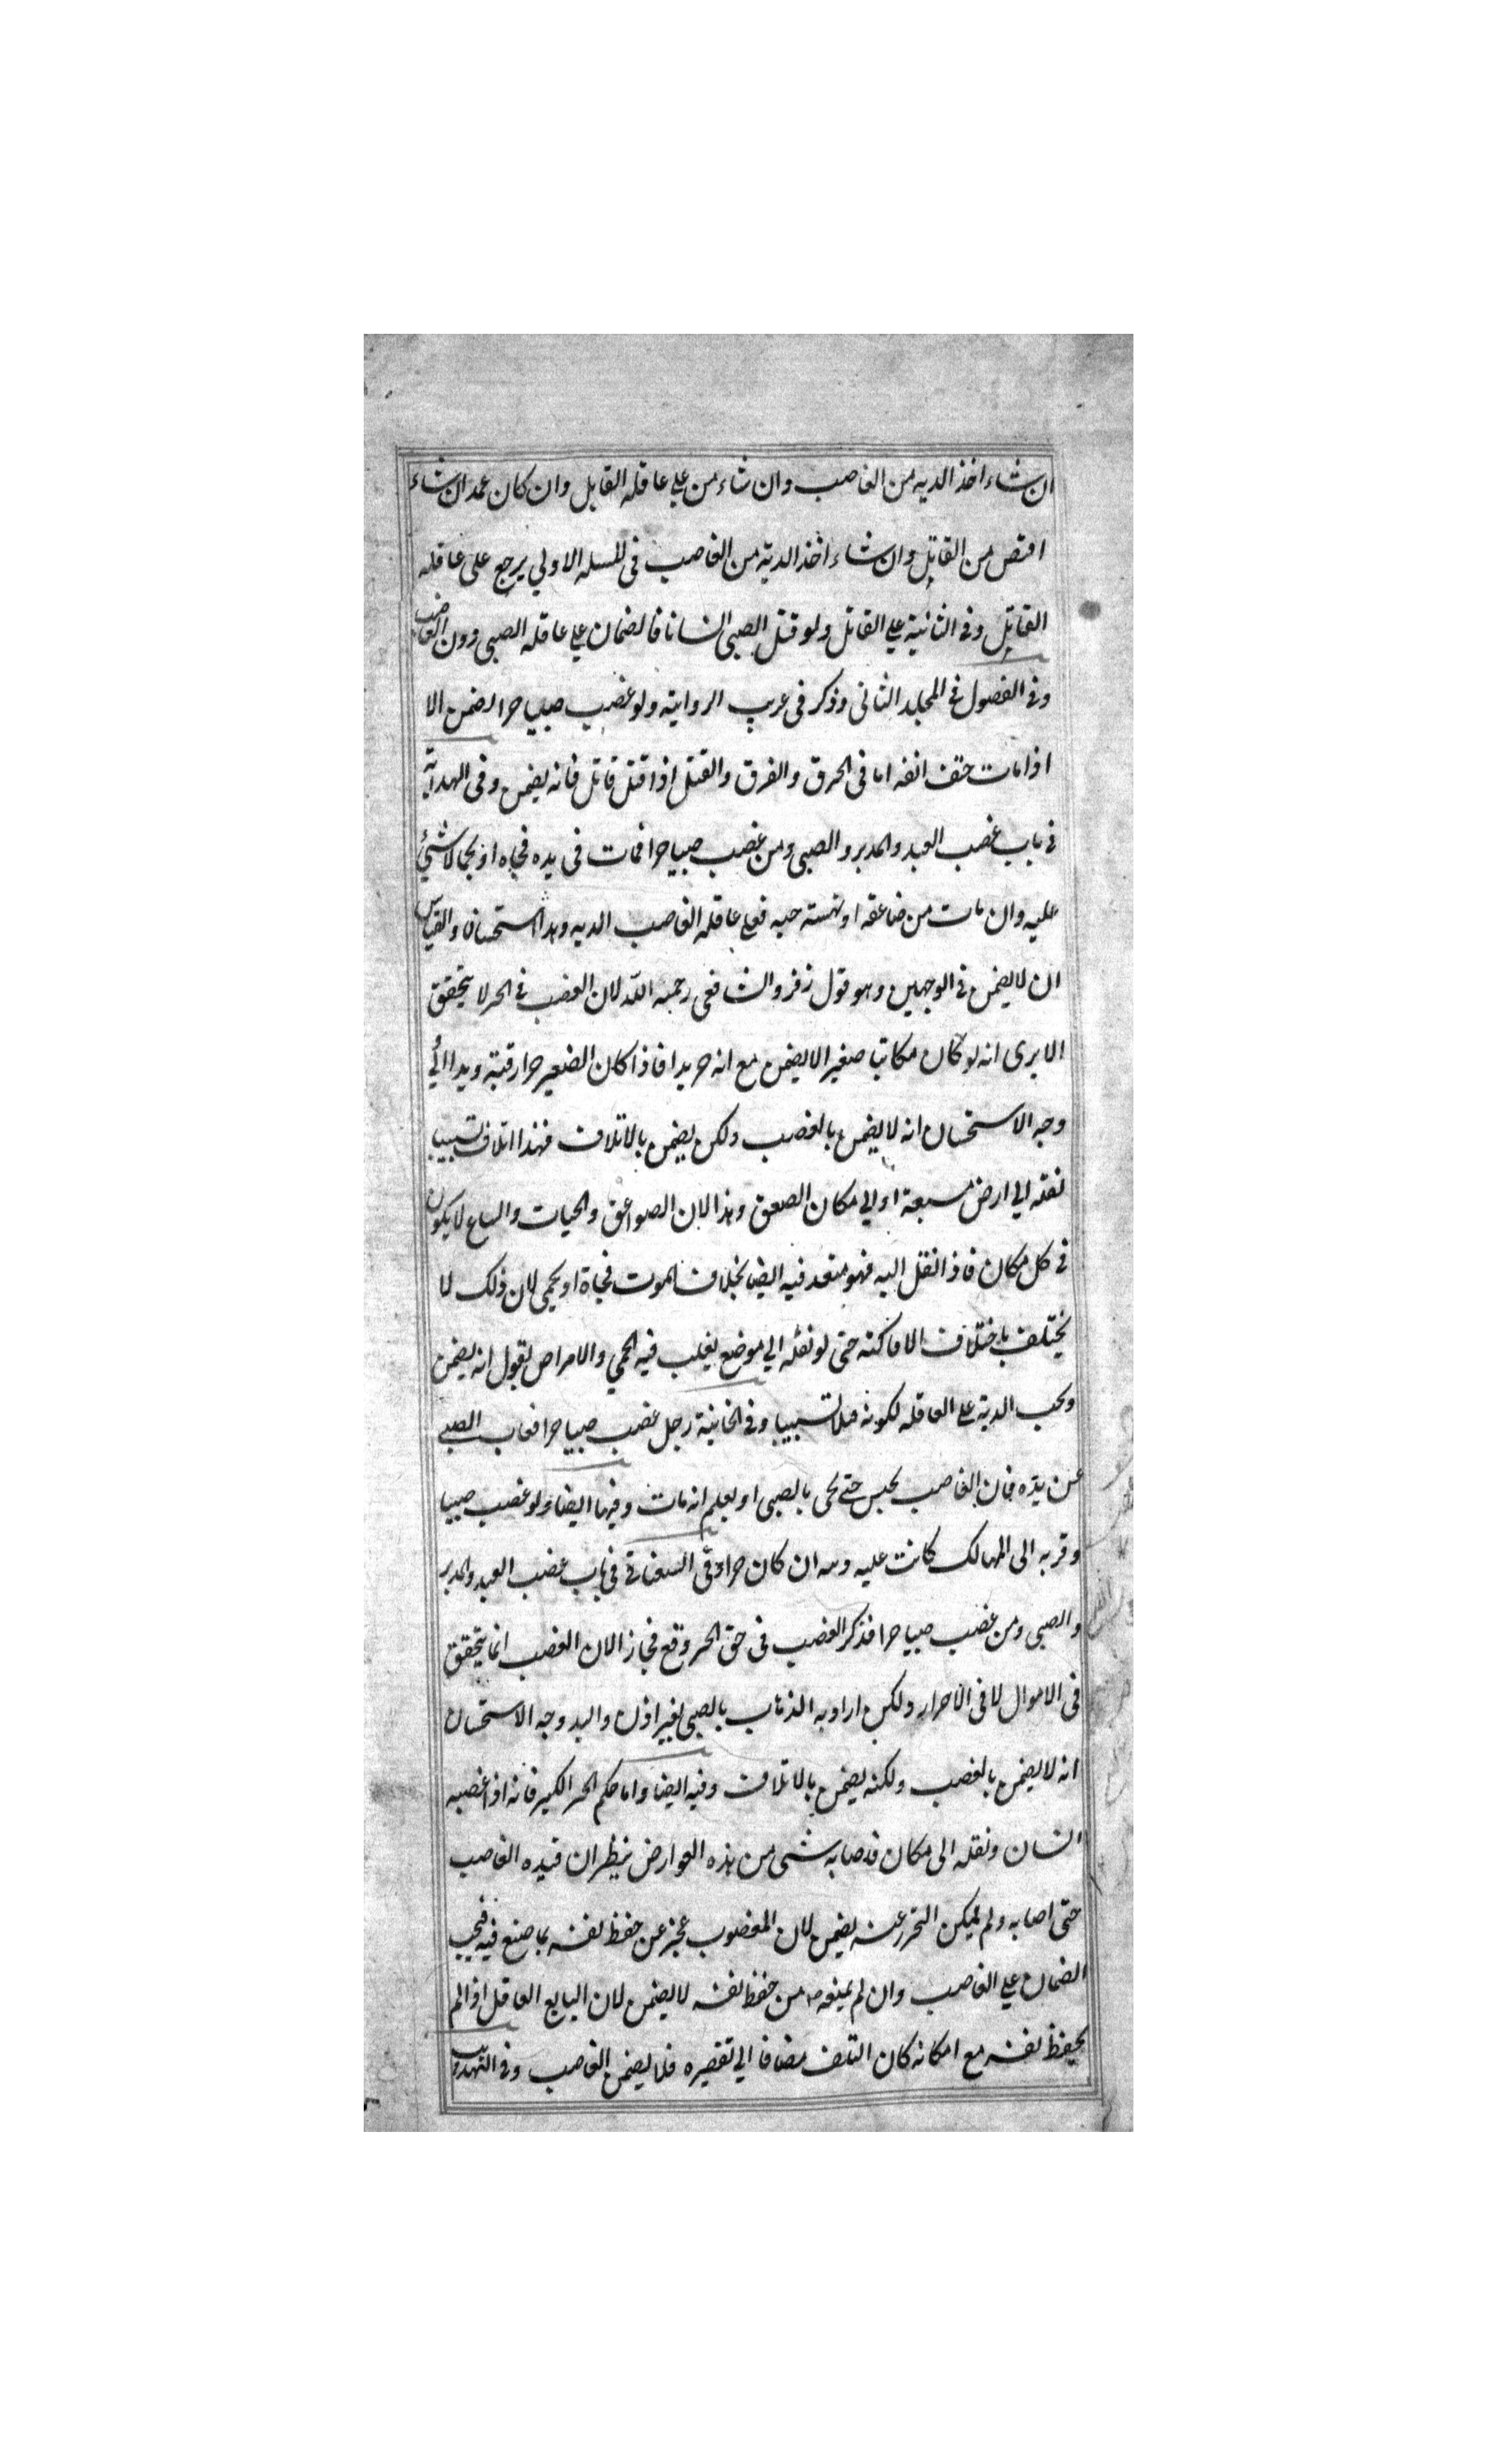 ان شاء اخذ الديه من الغاصب وان شاء من علي عاقله القاتل وان كان عمد ان شاء
اقتص من القاتل وان شاء اخذ الدية من الغاصب فى المسله الاولي يرجع على عاقله
القاتل وفى الثانية علي القاتل ولو قتل الصبى انسانا فالضمان علي عاقله الصبى دون الغاصب
وفى الفصول فى المجلد الثانى وذكر فى غريب الرواية ولو غصب صبيا حرا لضمن الا
اذا مات حتف انفه اما فى الحرق والغرق والقتل اذا قتل قاتل فانه يضمن وفى الهداية
فى باب غصب العبد والمدبر والصبى ومن غصب صبيا حرا فمات فى يده فجاه او بحما لا شئ
عليه وان مات من صاعقه او نهسته حيه فعلى عاقله الغاصب الديه وهذا استحسان والقياس
ان لا يضمن فى الوجهين وهو قول زفر والشافعى رحمه الله لان الغصب فى الحر لا يتحقق
الا يرى انه لو كان مكاتبا صغيرا لا يضمن مع انه حر يدا فاذا كان الصغير حرا رقبة ويدا اولي
وجه الاستحسان انه لا يضمن بالغصب ولكن يضمن بالاتلاف فهذا اتلاف تسبيبا
نقله الي ارض مسبعة او الي مكان الصعق وهذا لان الصواعق والحيات والسباع لا يكون
فى كل مكان فاذا نقل اليه فهو متعد فيه ايضا بخلاف الموت فجاة او بحمى لان ذلك لا
يختلف باختلاف الاماكنه حتى لو نقله الي موضع يغلب فيه الحمي والامراض نقول انه يضمن
وتجب الدية علي العاقله لكونه قتلا تسبيبا وفى الخانية رجل غصب صبيا حرا فغاب الصبي
عن يده فان الغاصب يحبس حتى يجى بالصبى او يعلم انه مات وفيها ايضا ولو غصب صبيا
وقربه الى المهالك كانت عليه ديته ان كان حرا وفى السغناقى فى باب غصب العبد والمدبر
والصبى ومن غصب صبيا حرا فذكر الغصب فى حق الحر وقع مجازا لان الغصب انما يتحقق
فى الاموال لا فى الاحرار ولكن اراد به الذهاب بالصبى بغير اذن واليد وجه الاستحسان
انه لا يضمن بالغصب ولكنه يضمن بالاتلاف وفيه ايضا واما حكم الحر الكبير فانه اذا غصبه
انسان ونقله الى مكان فاصابه شى من هذه العوارض ينظر ان قيده الغاصب
حتى اصابه ولم يمكن التحرز عنه يضمن لان المغصوب عجز عن حفظ نفسه بما صنع فيه فيجب
الضمان علي الغاصب وان لم يمنعه من حفظ نفسه لا يضمن لان البالغ العاقل اذا لم
يحفظ نفسه مع امكانه كان التلف مضافا الي تقصيره فلا يضمن الغاصب وفى التهذيب